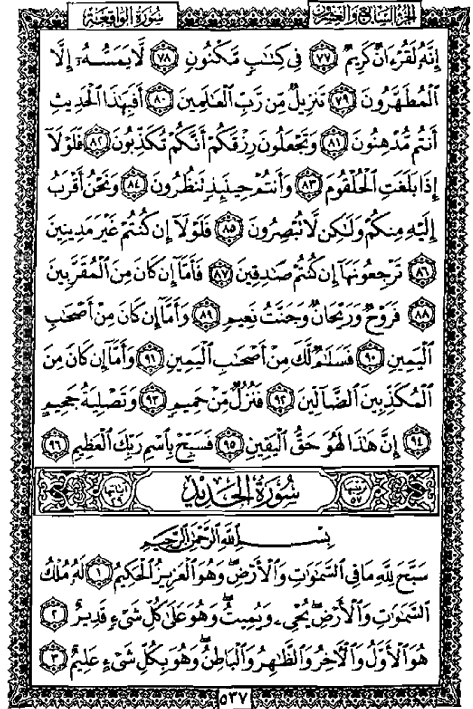 الجزء السابع والعشرون سورة الواقعة
إِنَّهُۥ لَقُرْءَانٌ كَرِيمٌ ﴿٧٧﴾ فِى كِتَٰبٍ مَّكْنُونٍ ﴿٧٨﴾ لَّا يَمَسُّهُۥٓ إِلَّا
ٱلْمُطَهَّرُونَ ﴿٧٩﴾ تَنزِيلٌ مِّن رَّبِّ ٱلْعَٰلَمِينَ ﴿٨٠﴾ أَفَبِهَٰذَا ٱلْحَدِيثِ
أَنتُم مُّدْهِنُونَ ﴿٨١﴾ وَتَجْعَلُونَ رِزْقَكُمْ أَنَّكُمْ تُكَذِّبُونَ ﴿٨٢﴾ فَلَوْلَآ
إِذَا بَلَغَتِ ٱلْحُلْقُومَ ﴿٨٣﴾ وَأَنتُمْ حِينَئِذٍ تَنظُرُونَ ﴿٨٤﴾ وَنَحْنُ أَقْرَبُ
إِلَيْهِ مِنكُمْ وَلَٰكِن لَّا تُبْصِرُونَ ﴿٨٥﴾ فَلَوْلَآ إِن كُنتُمْ غَيْرَ مَدِينِينَ
﴿٨٦﴾ تَرْجِعُونَهَآ إِن كُنتُمْ صَٰدِقِينَ ﴿٨٧﴾ فَأَمَّآ إِن كَانَ مِنَ ٱلْمُقَرَّبِينَ
﴿٨٨﴾ فَرَوْحٌ وَرَيْحَانٌ وَجَنَّتُ نَعِيمٍ ﴿٨٩﴾ وَأَمَّآ إِن كَانَ مِنْ أَصْحَٰبِ
ٱلْيَمِينِ ﴿٩٠﴾ فَسَلَٰمٌ لَّكَ مِنْ أَصْحَٰبِ ٱلْيَمِينِ ﴿٩١﴾ وَأَمَّآ إِن كَانَ مِنَ
ٱلْمُكَذِّبِينَ ٱلضَّآلِّينَ ﴿٩٢﴾ فَنُزُلٌ مِّنْ حَمِيمٍ ﴿٩٣﴾ وَتَصْلِيَةُ جَحِيمٍ
﴿٩٤﴾ إِنَّ هَٰذَا لَهُوَ حَقُّ ٱلْيَقِينِ ﴿٩٥﴾ فَسَبِّحْ بِٱسْمِ رَبِّكَ ٱلْعَظِيمِ ﴿٩٦﴾
ترتيبها ٥٧ سورة الحديد آياتها ٢٩
بِسْمِ ٱللَّهِ ٱلرَّحْمَٰنِ ٱلرَّحِيمِ
سَبَّحَ لِلَّهِ مَا فِى ٱلسَّمَٰوَٰتِ وَٱلْأَرْضِ وَهُوَ ٱلْعَزِيزُ ٱلْحَكِيمُ ﴿١﴾ لَهُۥ مُلْكُ
ٱلسَّمَٰوَٰتِ وَٱلْأَرْضِ يُحْىِۦ وَيُمِيتُ وَهُوَ عَلَىٰ كُلِّ شَىْءٍ قَدِيرٌ ﴿٢﴾
هُوَ ٱلْأَوَّلُ وَٱلْءَاخِرُ وَٱلظَّٰهِرُ وَٱلْبَاطِنُ وَهُوَ بِكُلِّ شَىْءٍ عَلِيمٌ ﴿٣﴾
٥٣٧